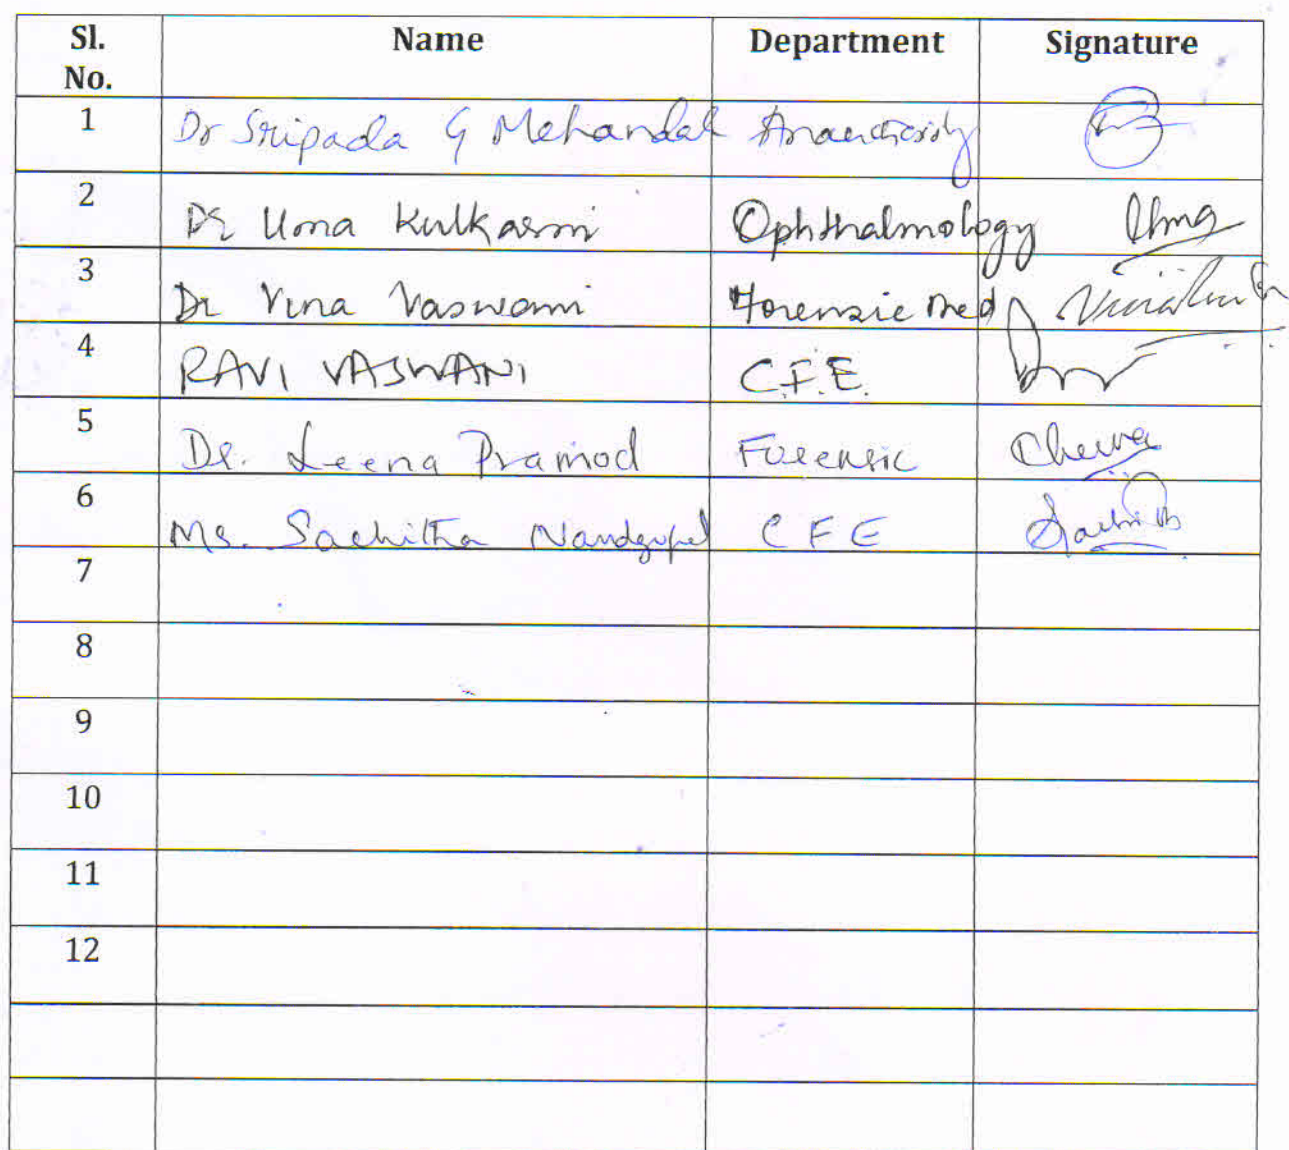 Sl. No. Name Department Signature
1 Dr Sripada G Mehandale
2 Dr Uma Kulkarni Ophthalmology Uma
3 Dr Vina Vaswani Forensic Med
4 RAVI VASWANI C.F.E.
5 Dr. Leena Pramod Forensic
6 Ms. Sachitha Nandgopal C F E
7
8
9
10
11
12